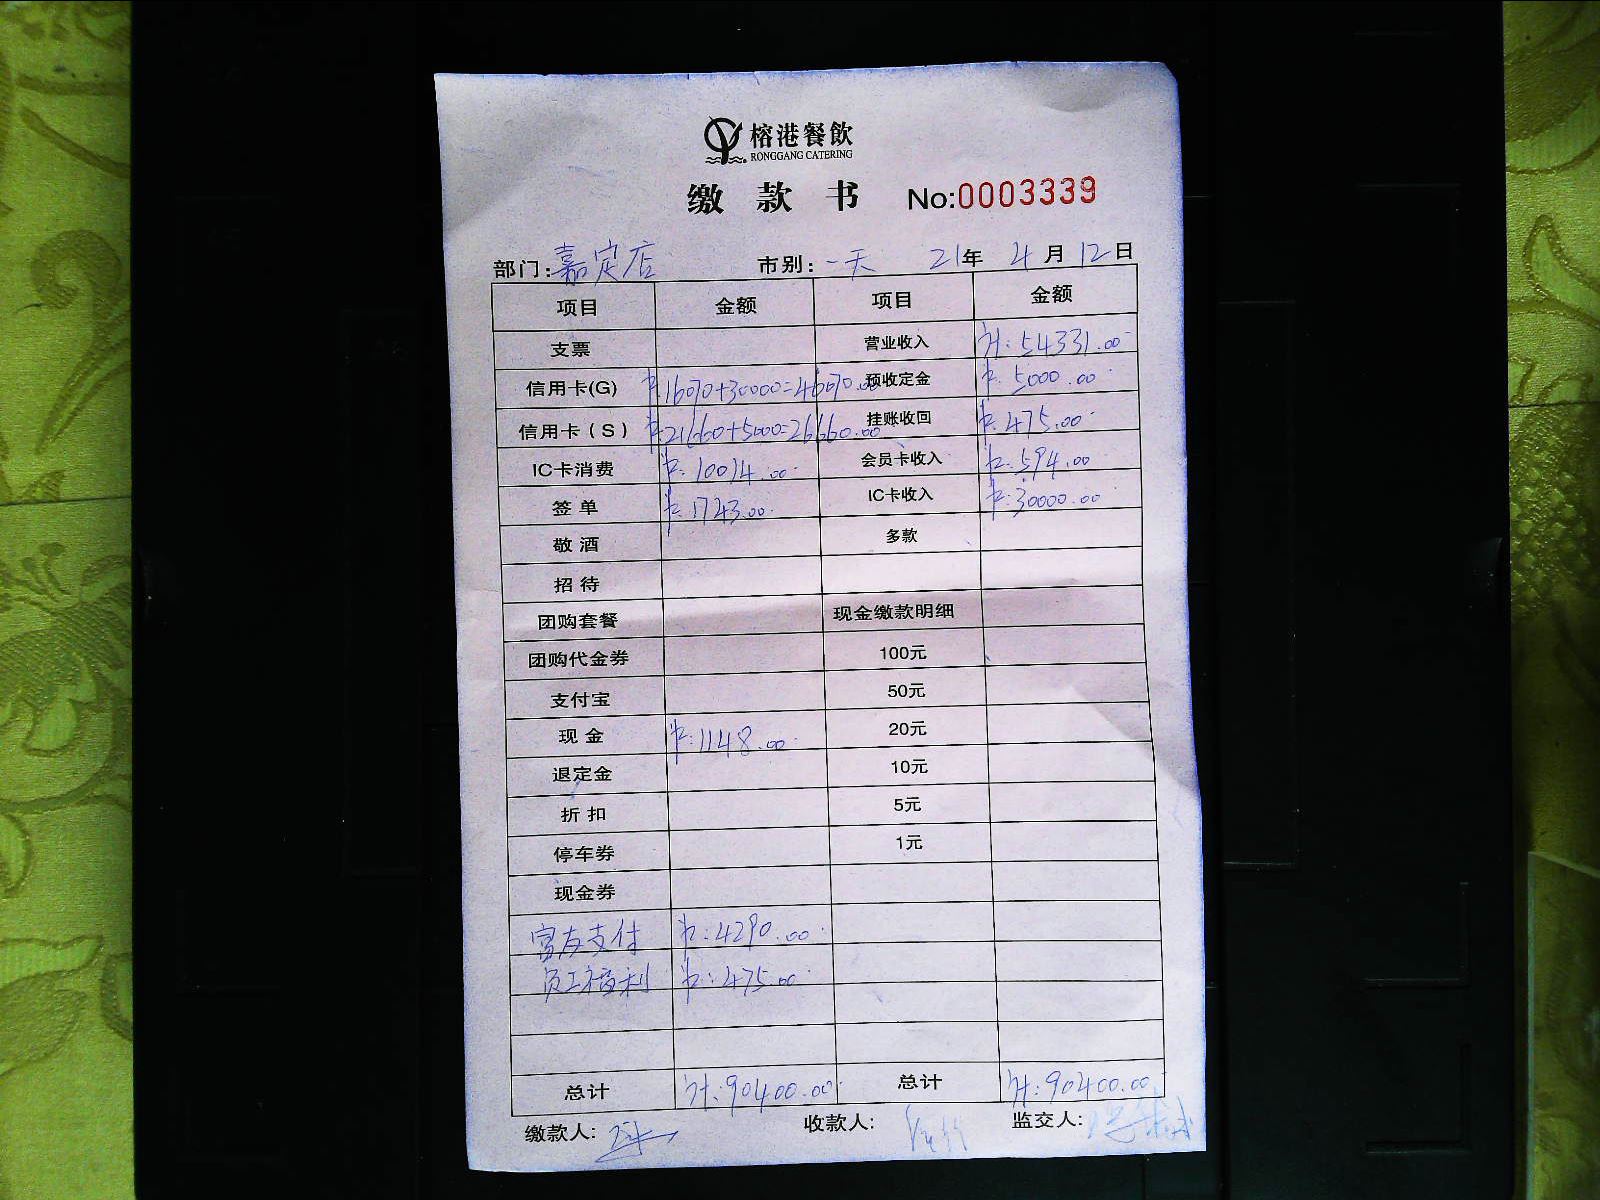 榕港餐飲
RONGGANG CATERING
缴款书 No:0003339
部门:嘉定店 市别:一天 21年4月12日
项目 金额 项目 金额
支票 营业收入 54331.00
信用卡(G) 16070+30000=46070.00 预收定金 5000.00
信用卡(S) 21660+5000=26660.00 挂账收回 475.00
IC卡消费 10014.00 会员卡收入 594.00
签单 1743.00 IC卡收入 30000.00
敬酒 多款
招待
团购套餐 现金缴款明细
团购代金券 100元
支付宝 50元
现金 1148.00 20元
退定金 10元
折扣 5元
停车券 1元
现金券
富友支付 4290.00
员工福利 475.00
总计 90400.00 总计 90400.00
缴款人: 收款人: 监交人: